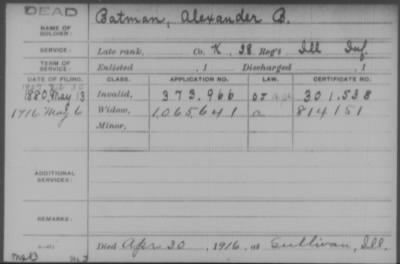 DEAD
NAME OF SOLDIER: Batman, Alexander B.
SERVICE: Late rank, Co. K, 38 Reg't Ill Inf.
TERM OF SERVICE: Enlisted , 1 Discharged , 1
DATE OF FILING. CLASS. APPLICATION NO. LAW. CERTIFICATE NO.
1880, May 13 Invalid, 373,966 301,538
1916 May 6 Widow, 1,065,641 a 814151
Minor,
ADDITIONAL SERVICES:
REMARKS:
Died Apr 20, 1916, at Sullivan, Ill.